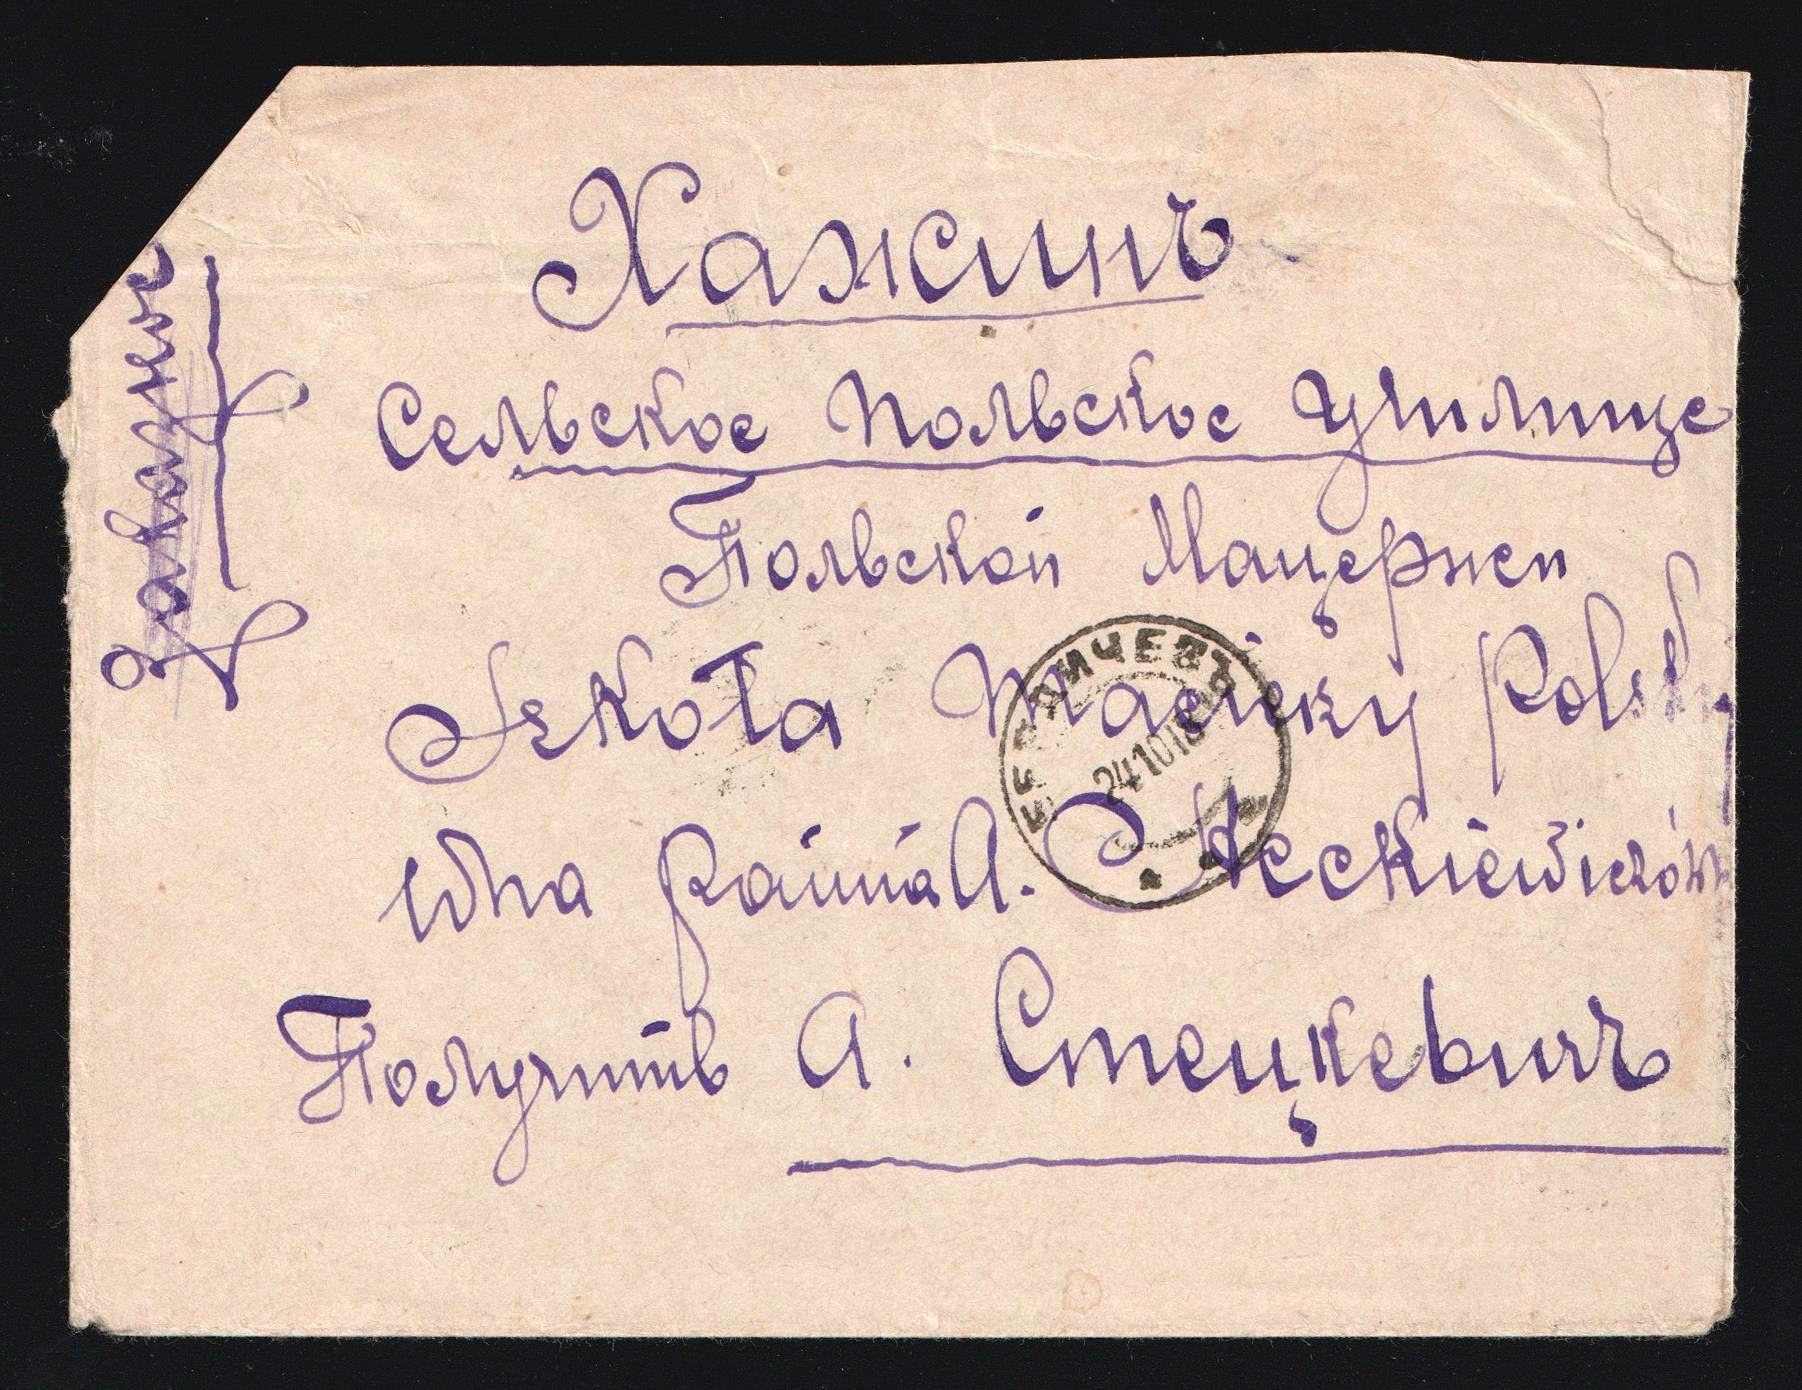 Заказное
Хажинъ
Сельское Польское Училище
Польской Мацержеи
Szkoła Macieży Polsky
Wna panna A. Steckiewiczówn
Получить А. Стецкевичъ
БЕРДИЧЕВЪ
24 10 18